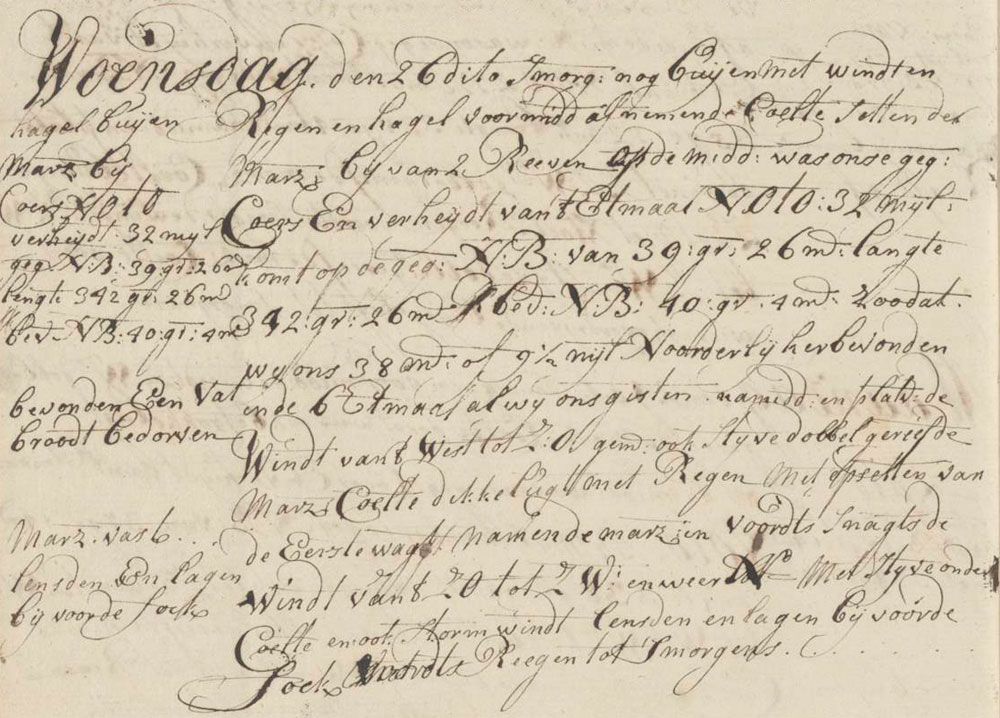 Woensdag. den 26 dito Smorg: nog buijen met windt en
hagel buijen
Regen en hagel voormidd afnemende Coelte setten de
Marz: bij
Marz: bij van 2 Reeven op de midd: was onse geg:
Coers NOtO
Coers En verheydt van't Etmaal NOtO: 32 mijl:
verheydt 32 mijl
komt op de geg: N:B: van 39: gr: 26 md: langte
geg N:B: 39: gr: 26 md
lengt: 342 gr: 26 md
342: gr: 26 md bed: N:B: 40: gr: 4 md: Zoodat
bev N:B: 40: gr: 4 md
wy ons 38 md: of 9½ mijl Noorderlijker bevonden
bevonden Een Vat
inde 6 Etmaal al wy ons gisten. namidd: en platv: de
broodt bedorven
Windt van't West tot Z:O. gemd: ook Styve dobbel gereefde
Marz: Coelte dikke lugt met Regen Met opsetten van
Marz: vast . . .
de Eerste wagt namen de marz: in voordts Snagts de
lensden En lagen
windt van't ZO tot Z W: en weer Met Styve onder
bij voorde fock
Coelte en ook Storm windt lensden en lagen bij voorde
fock Reegen tot Smorgens. . . . . .